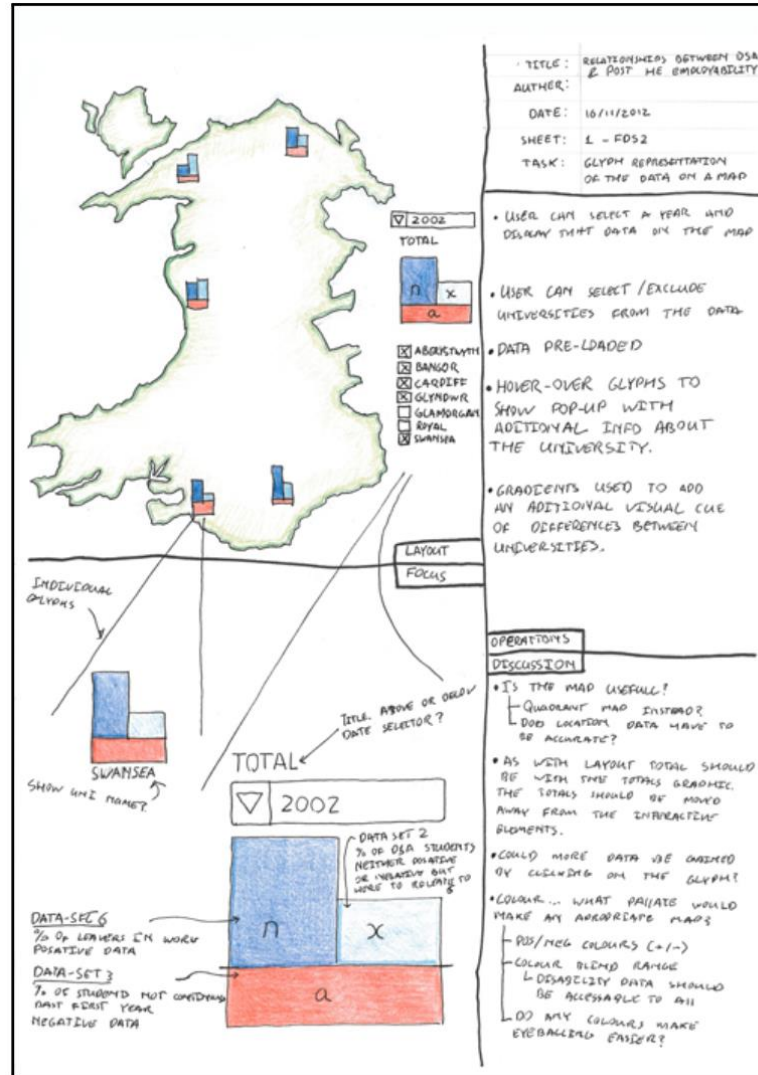 TITLE: RELATIONSHIPS BETWEEN DSA
& POST HE EMPLOYABILITY
AUTHER:
DATE: 16/11/2012
SHEET: 1 - FDS2
TASK: GLYPH REPRESENTATION
OF THE DATA ON A MAP
▽ 2002
TOTAL
n
x
a
☒ ABERYSTWYTH
☒ BANGOR
☒ CARDIFF
☒ GLYNDWR
☐ GLAMORGAN
☐ ROYAL
☒ SWANSEA
LAYOUT
• USER CAN SELECT A YEAR AND
DISPLAY THAT DATA ON THE MAP
• USER CAN SELECT / EXCLUDE
UNIVERSITIES FROM THE DATA
• DATA PRE-LOADED
• HOVER-OVER GLYPHS TO
SHOW POP-UP WITH
ADITIONAL INFO ABOUT
THE UNIVERSITY.
• GRADIENTS USED TO ADD
AN ADITIONAL VISUAL CUE
OF DIFFERENCES BETWEEN
UNIVERSITIES.
OPERATIONS
FOCUS
INDIVIDUAL
GLYPHS
SWANSEA
SHOW UNI NAME?
TITLE ABOVE OR BELOW
DATE SELECTOR?
TOTAL
▽ 2002
DATA SET 2
% OF DSA STUDENTS
NEITHER POSITIVE
OR NEGATIVE BUT
HERE TO RELEATE TO
6
n
x
a
DATA-SET 6
% OF LEAVERS IN WORK
POSITIVE DATA
DATA-SET 3
% OF STUDEND NOT CONTINUING
PAST FIRST YEAR
NEGATIVE DATA
DISCUSSION
• IS THE MAP USEFULL?
QUADRANT MAP INSTEAD?
DOES LOCATION DATA HAVE TO
BE ACCURATE?
• AS WITH LAYOUT TOTAL SHOULD
BE WITH THE TOTALS GRAPHIC.
THE TOTALS SHOULD BE MOVED
AWAY FROM THE INTERACTIVE
ELEMENTS.
• COULD MORE DATA BE GAINED
BY CLICKING ON THE GLYPH?
• COLOUR... WHAT PALLATE WOULD
MAKE AN APROPRIATE MAP?
POS/NEG COLOURS (+/-)
COLOUR BLIND RANGE
DISABILITY DATA SHOULD
BE ACCESSABLE TO All
DO ANY COLOURS MAKE
EYEBALLING EASIER?